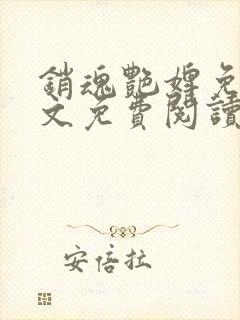 銷魂艷婢免
文免費閱讀
安倍拉